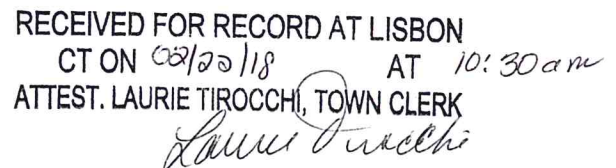 RECEIVED FOR RECORD AT LISBON
CT ON 02/22/18 AT 10:30am
ATTEST. LAURIE TIROCCHI, TOWN CLERK
Laurie Tirocchi